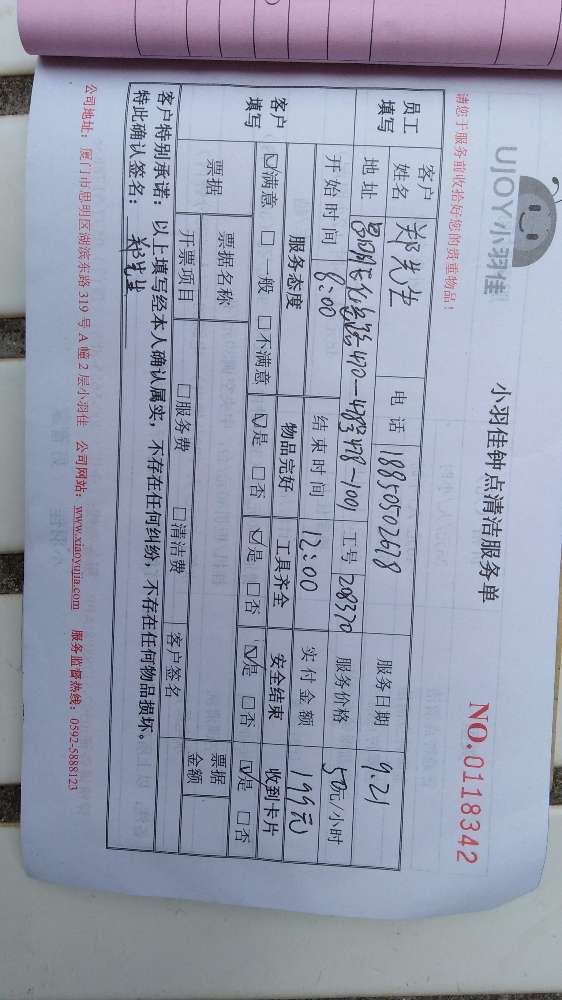 请您于服务前收拾好您的贵重物品！
UJOY小羽佳
小羽佳钟点清洁服务单
NO.0118342
员工填写 客户姓名 郑先生 电话 18850502618 服务日期 9.21
地址 470-478号478-1001 工号 208370 服务价格 50元/小时
开始时间 8:00 结束时间 12:00 实付金额 199元
客户填写 服务态度 物品完好 工具齐全 安全结束 收到卡片
☑满意 □一般 □不满意 ☑是 □否 ☑是 □否 ☑是 □否 ☑是 □否
票据 票据名称 票据金额
开票项目 □服务费 □清洁费 客户签名
客户特别承诺：以上填写经本人确认属实，不存在任何纠纷，不存在任何物品损坏。
特此确认签名：郑先生
公司地址：厦门市思明区湖滨东路 319 号 A 幢 2 层小羽佳 公司网站：www.xiaoyujia.com 服务监督热线：0592-5888123